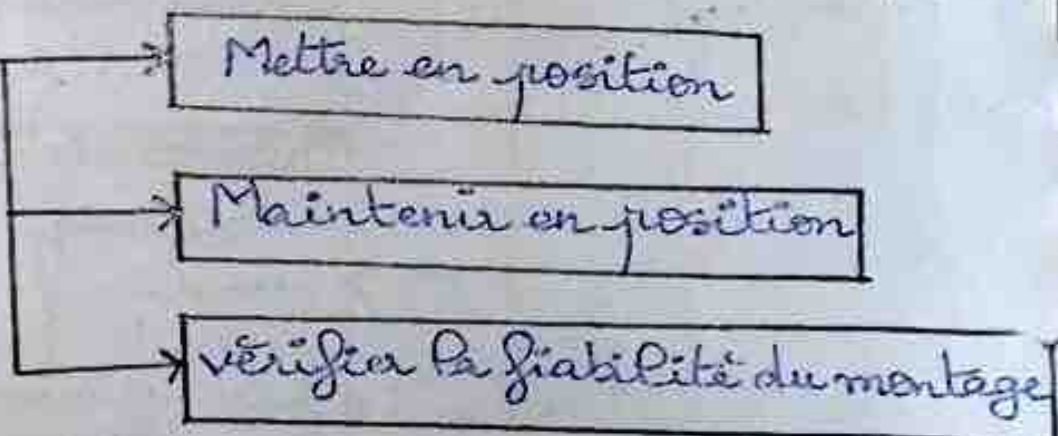 Mettre en position
Maintenir en position
vérifier la fiabilité du montage